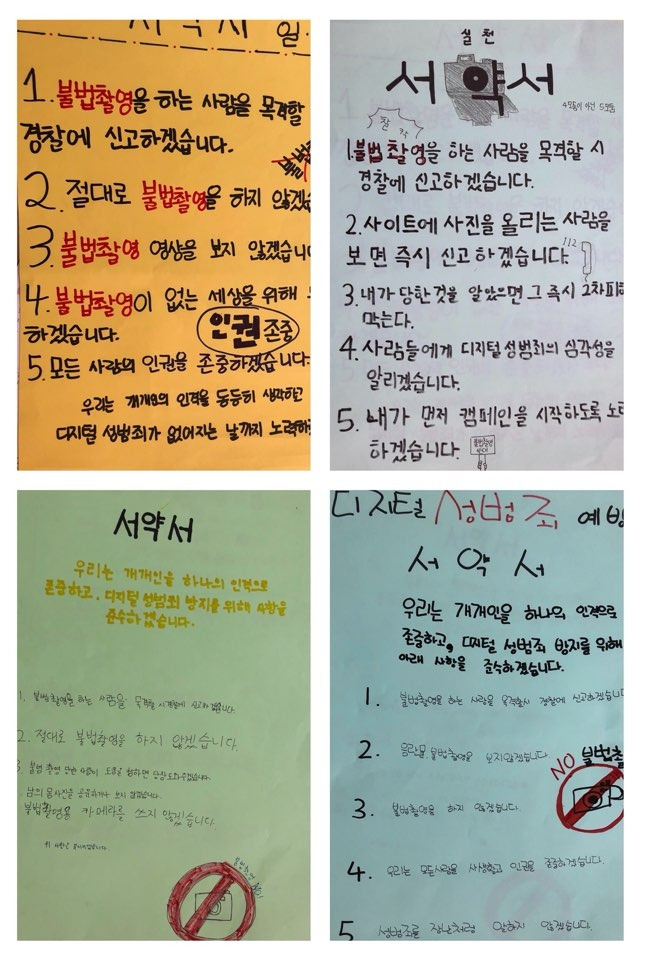 서약서
1. 불법촬영을 하는 사람을 목격할
경찰에 신고하겠습니다.
2. 절대로 불법촬영을 하지 않겠습
3. 불법촬영 영상을 보지 않겠습니
4. 불법촬영이 없는 세상을 위해
하겠습니다.
인권 존중
5. 모든 사람의 인권을 존중하겠습니다.
우리는 개개인의 인격을 동등히 생각하고
디지털 성범죄가 없어지는 날까지 노력하
실천
서약서
찰칵
1. 불법촬영을 하는 사람을 목격할 시
경찰에 신고하겠습니다.
2. 사이트에 사진을 올리는 사람을
보면 즉시 신고하겠습니다.
112
3. 내가 당한것을 알았으면 그 즉시 2차피해
막는다.
4. 사람들에게 디지털 성범죄의 심각성을
알리겠습니다.
5. 내가 먼저 캠페인을 시작하도록 노력
하겠습니다.
서약서
우리는 개개인을 하나의 인격으로
존중하고, 디지털 성범죄 방지를 위해 사항을
준수하겠습니다.
1. 불법촬영을 하는 사람을 목격할 시 경찰에 신고하겠습니다.
2. 절대로 불법촬영을 하지 않겠습니다.
3. 불법 촬영 당한 사람이 도움을 청하면 당장 도와주겠습니다.
남의 몸사진을 공유하거나 보지 않겠습니다.
불법촬영용 카메라를 쓰지 않겠습니다.
디지털 성범죄 예방
서약서
우리는 개개인을 하나의 인격으로
존중하고, 디지털 성범죄 방지를 위해
아래 사항을 준수하겠습니다.
1. 불법촬영을 하는 사람을 목격할시 경찰에 신고하겠습니다
2. 음란물, 불법촬영을 보지않겠습니다.
NO 불법촬
3. 불법촬영을 하지 않겠습니다.
4. 우리는 모든사람을 사생활과 인권을 존중하겠습니다.
5 성범죄를 장난처럼 말하지 않겠습니다.